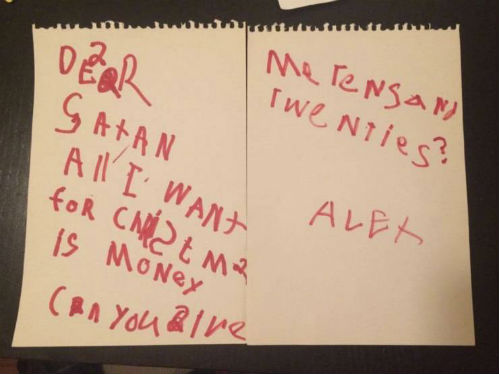 DEAR
SATAN
All I WANt
foR CHRIStMa
is MONey
CAN you give
Me TENS AND
TWeNTies?
ALEX